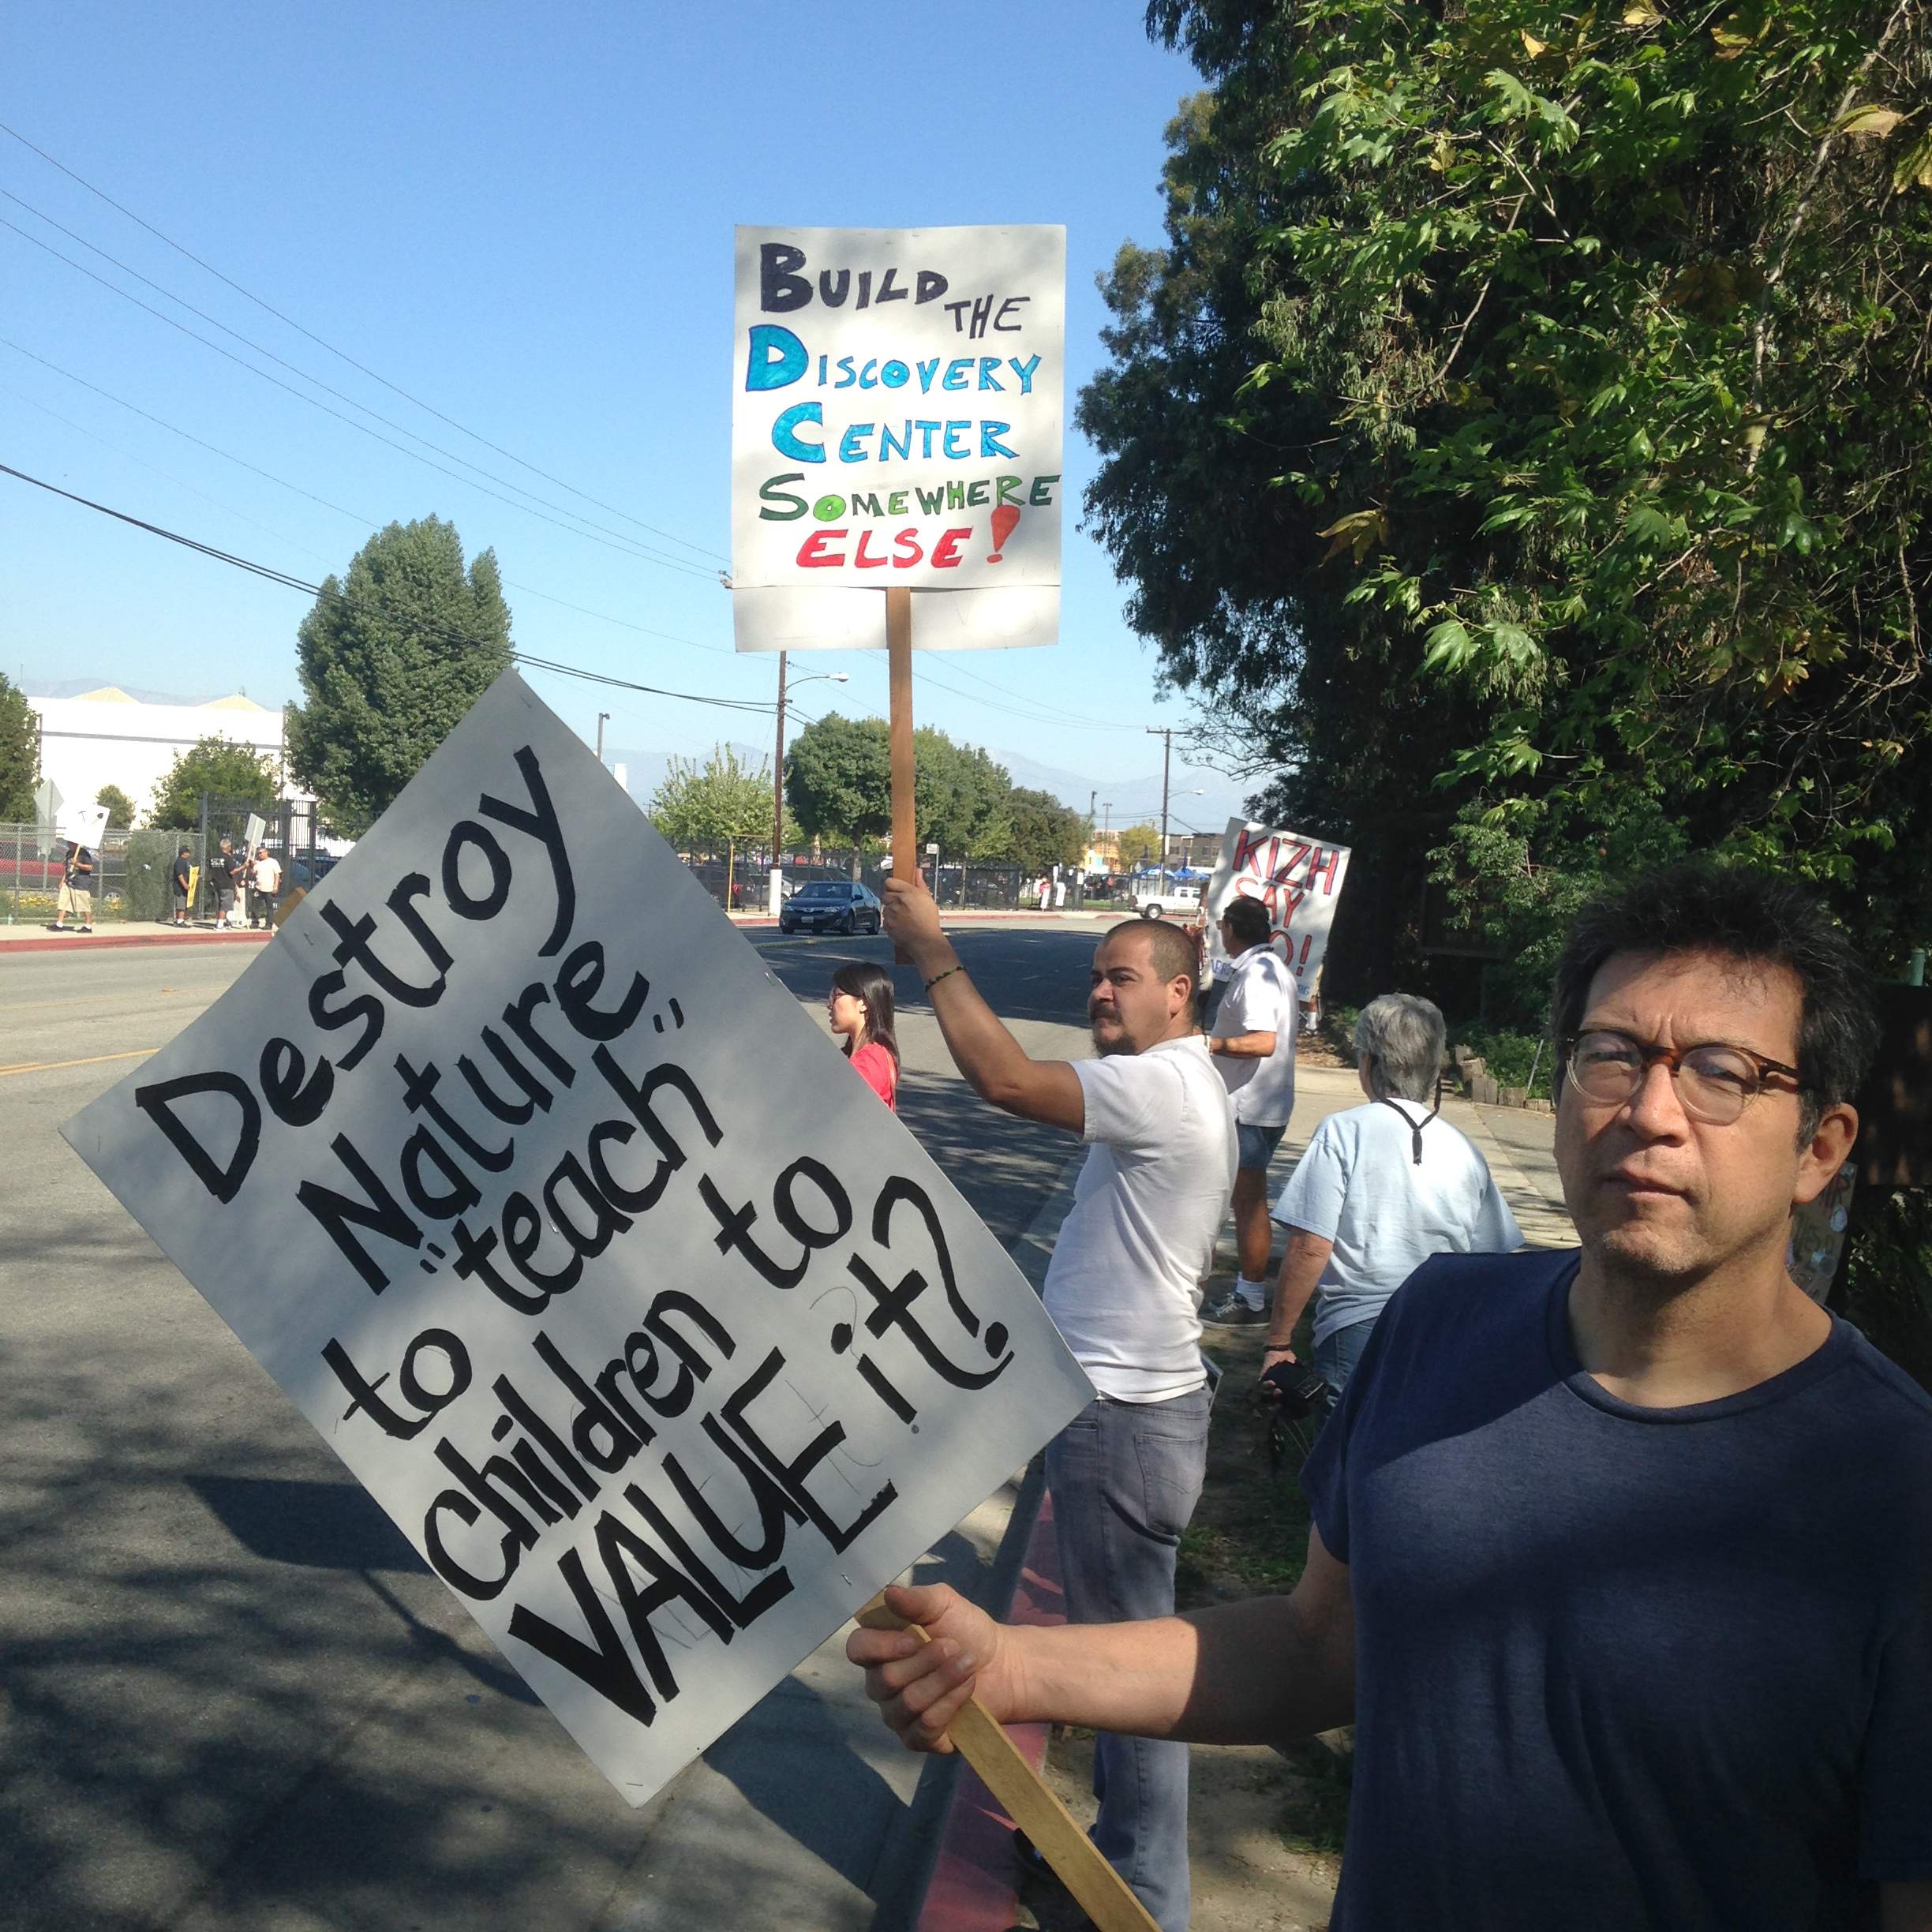 BUILD THE
DISCOVERY
CENTER
SOMEWHERE
ELSE!
Destroy
Nature,
"teach"
to
children to
VALUE it?
KIZH
SAY